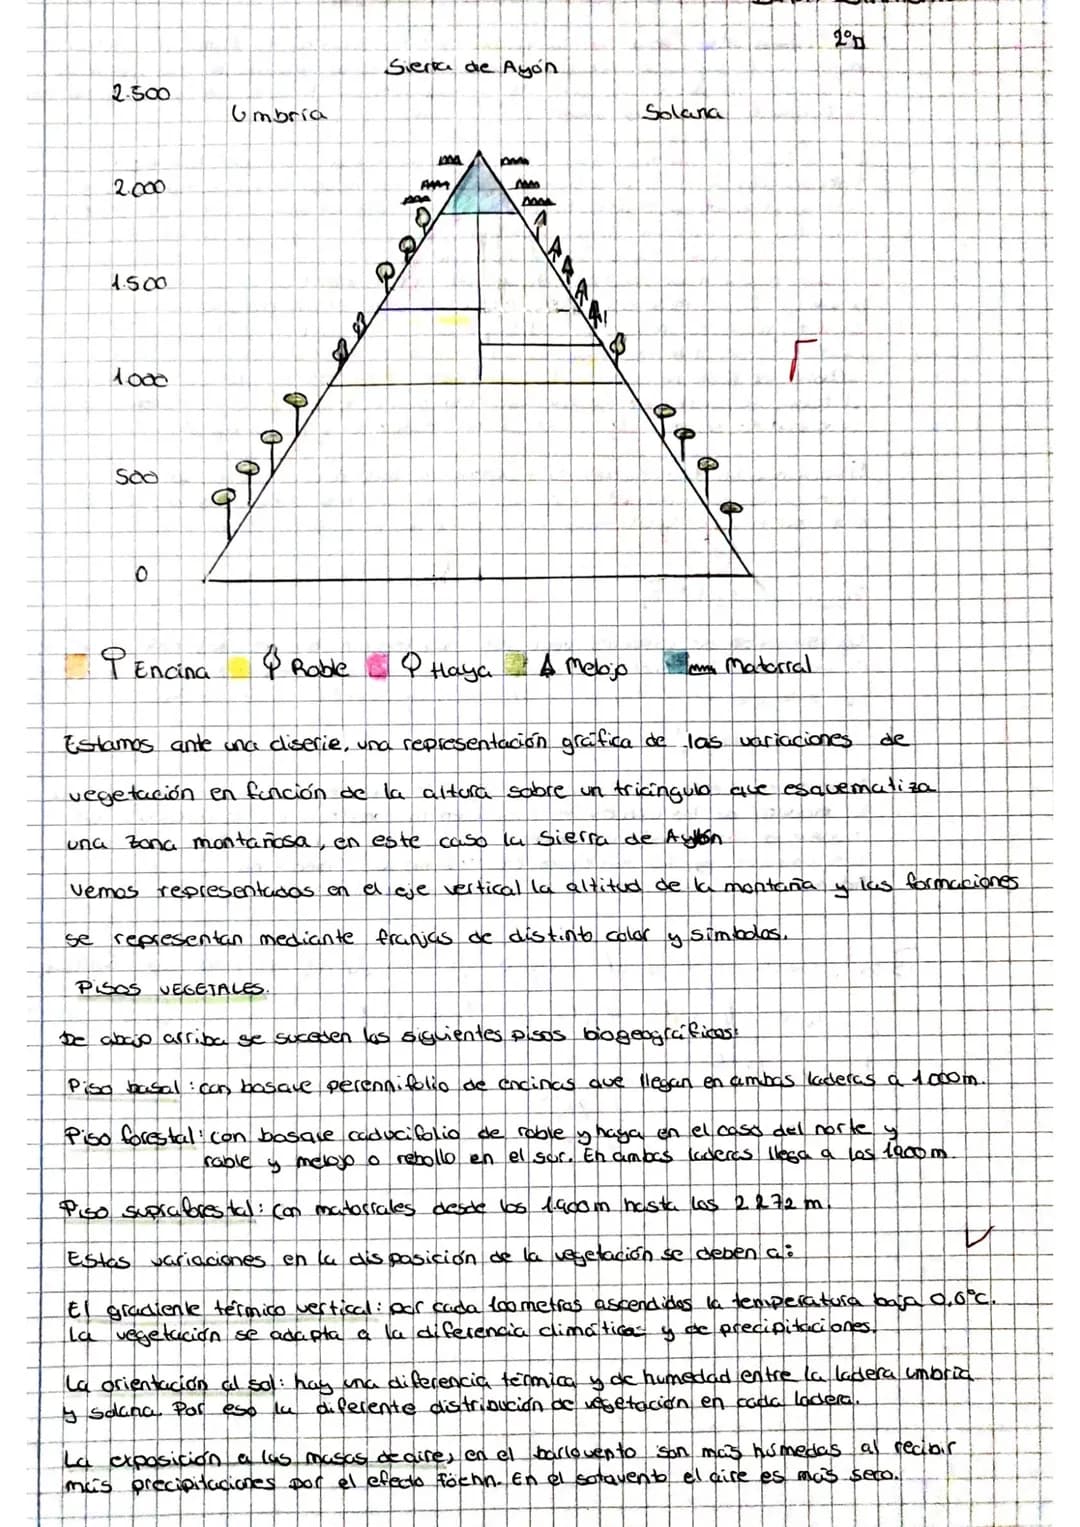 2ºD
Sierra de Ayón
2.500
Umbría
Solana
2.000
1.500
1.000
500
0
Encina Roble Haya Melojo Matorral
Estamos ante una cliserie, una representación gráfica de las variaciones de
vegetación en función de la altura sobre un triángulo que esquematiza
una zona montañosa, en este caso la Sierra de Ayllón
Vemos representados en el eje vertical la altitud de la montaña y las formaciones
se representan mediante franjas de distinto color y símbolos.
PISOS VEGETALES.
De abajo arriba se suceden los siguientes pisos biogeográficos:
Piso basal: con bosque perennifolio de encinas que llegan en ambas laderas a 1000m.
Piso forestal: con bosque caducifolio de roble y haya en el caso del norte y
roble y melojo o rebollo en el sur. En ambas laderas llega a los 1900m.
Piso supraforestal: con matorrales desde los 1.900m hasta los 2272 m.
Estas variaciones en la disposición de la vegetación se deben a:
El gradiente térmico vertical: por cada 100 metros ascendidos la temperatura baja 0,6ºC.
La vegetación se adapta a la diferencia climáticas y de precipitaciones.
La orientación al sol: hay una diferencia térmica y de humedad entre la ladera umbría
y solana. Por eso la diferente distribución de vegetación en cada ladera.
La exposición a las masas de aire, en el barlovento son más húmedas al recibir
más precipitaciones por el efecto Föehn. En el sotavento el aire es más seco.